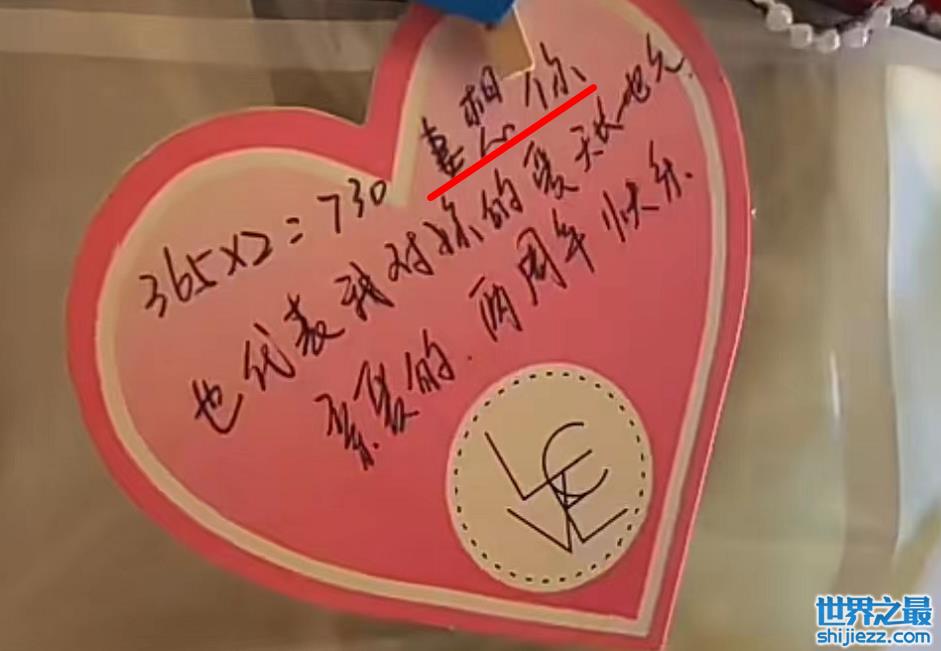 365×2=730 妻想你
也代表我对你的爱天长地久.
亲爱的.两周年快乐.
LOVE
世界之最
shijiezz.com